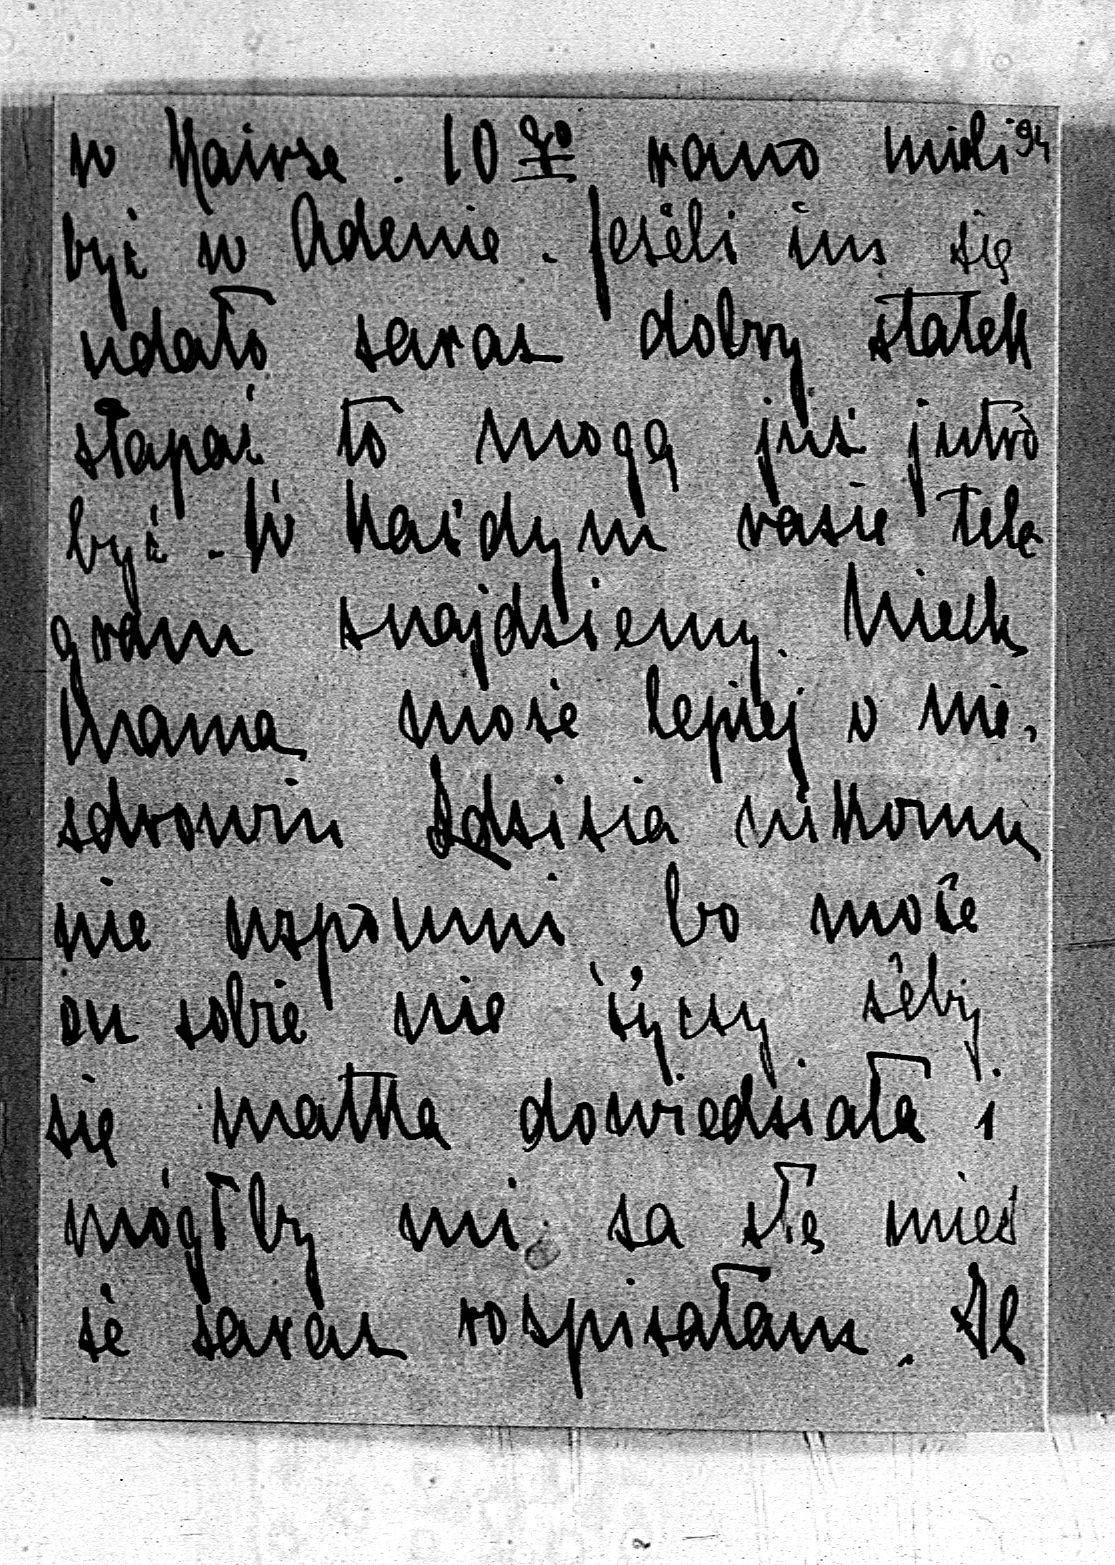 w Kairze. 10 go rano mieli 94
być w Adenie. Jeżeli im się
udało zaraz dobry statek
złapać to mogą już jutro
być. W każdym razie tele
gram znajdziemy. Niech
Mama może lepiej o nie.
zdrowiu Zdzisia nikomu
nie wspomni bo może
on sobie nie życzy żeby
się matka dowiedziała i
mógłby mi za złe mieć
że zaraz rozpisałam.